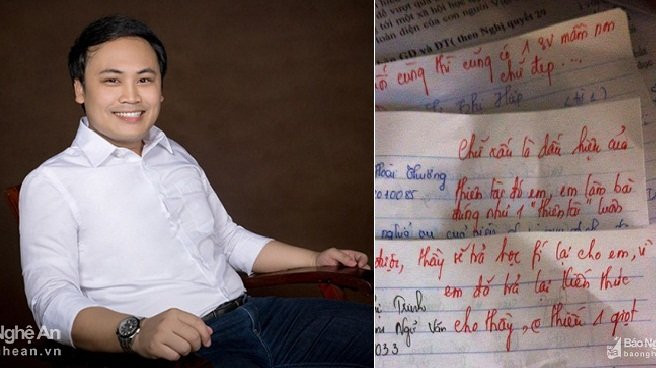 Nghệ An
nghean.vn
tới một xã hội học
toàn diện của con người Việt
GD và ĐT( theo Nghị quyết 29
cũng thì cũng có 1 sv mầm non
chữ đẹp ...
Chữ xấu là dấu hiệu của
Hoài Thương
thiên tài đó em, em làm bài
đúng như 1 "thiên tài" luôn
được, thầy sẽ trả học fí lại cho em, vì
em đã trả lại kiến thức
Trinh
Ngữ Văn
cho thầy, thiếu 1 giọt
033
Báo Ng
baongh